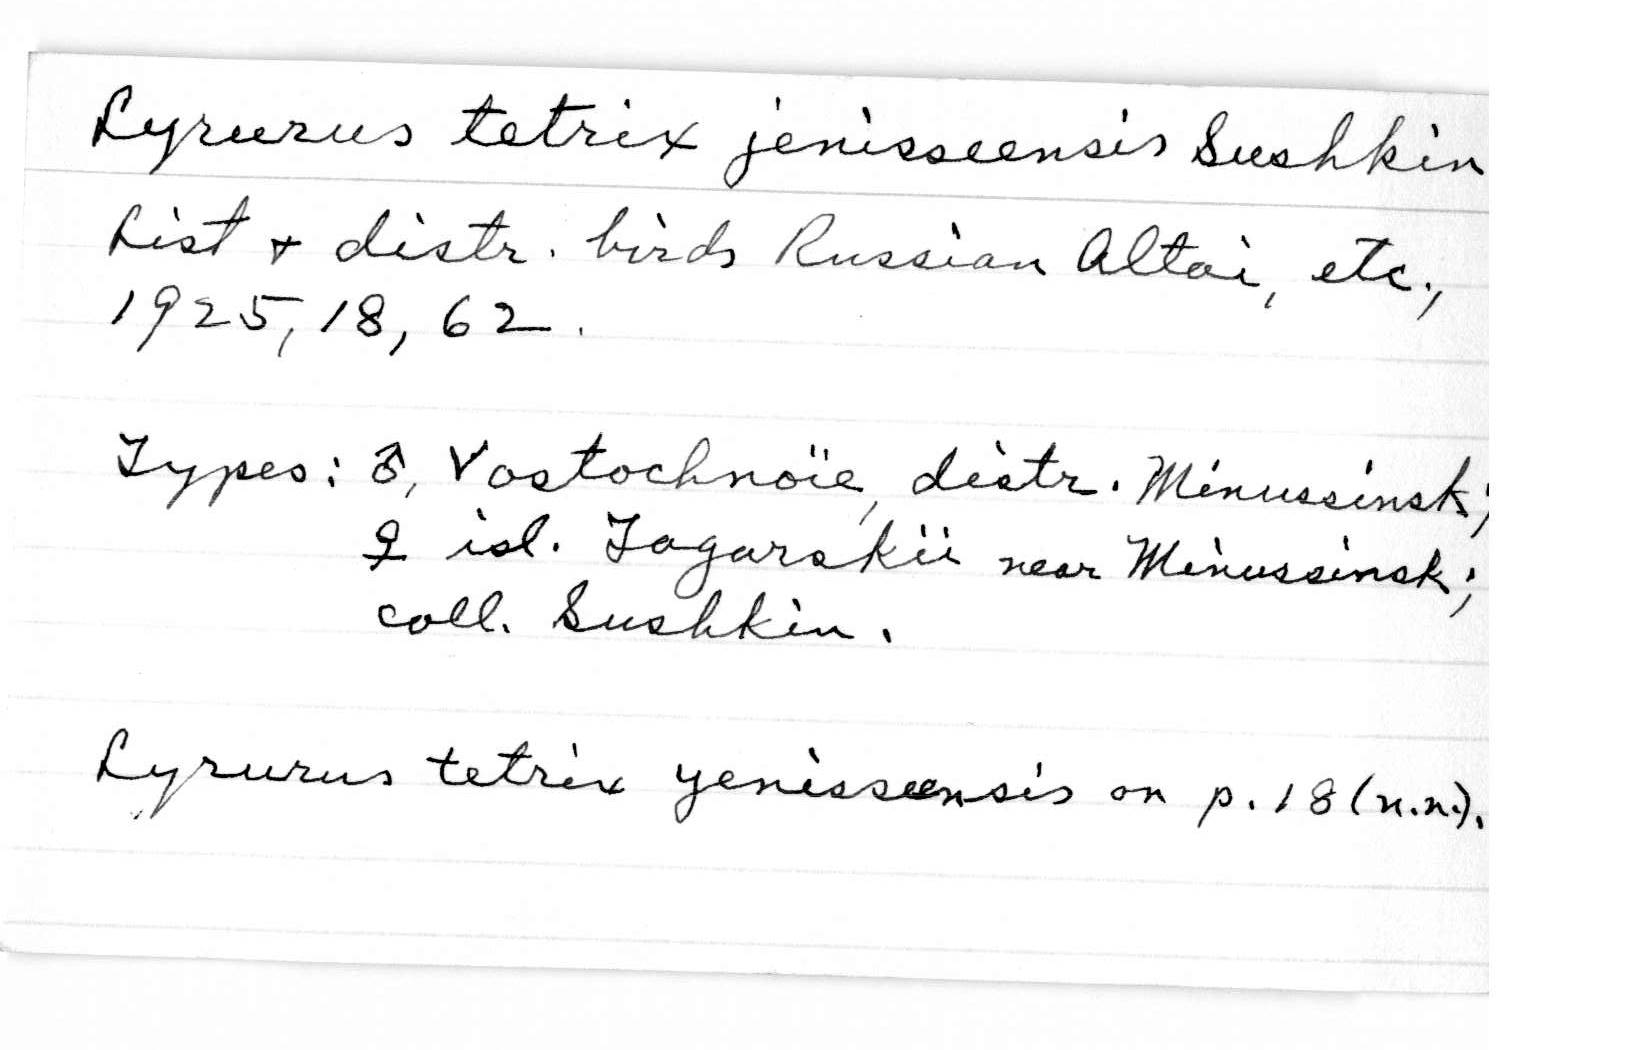 Lyrurus tetrix jenisseensis Sushkin
List + distr. birds Russian Altai, etc.,
1925, 18, 62.
Types: ♂, Vostochnoïe, distr. Minussinsk;
♀ isl. Tagarskii near Minussinsk;
coll. Sushkin.
Lyrurus tetrix yenisseensis on p. 18 (n.n.).